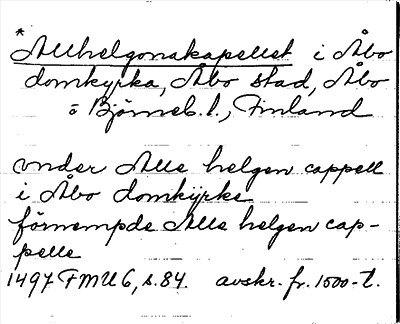 *Allhelgonakapellet i Åbo
domkyrka, Åbo stad, Åbo
o Björneb. l., Finland
vnder Alle helgen cappell
i Åbo domkijrke
förnempde Alle helgen cap-
pelle
1497 FMU 6, s. 84. avskr. fr. 1500-t.